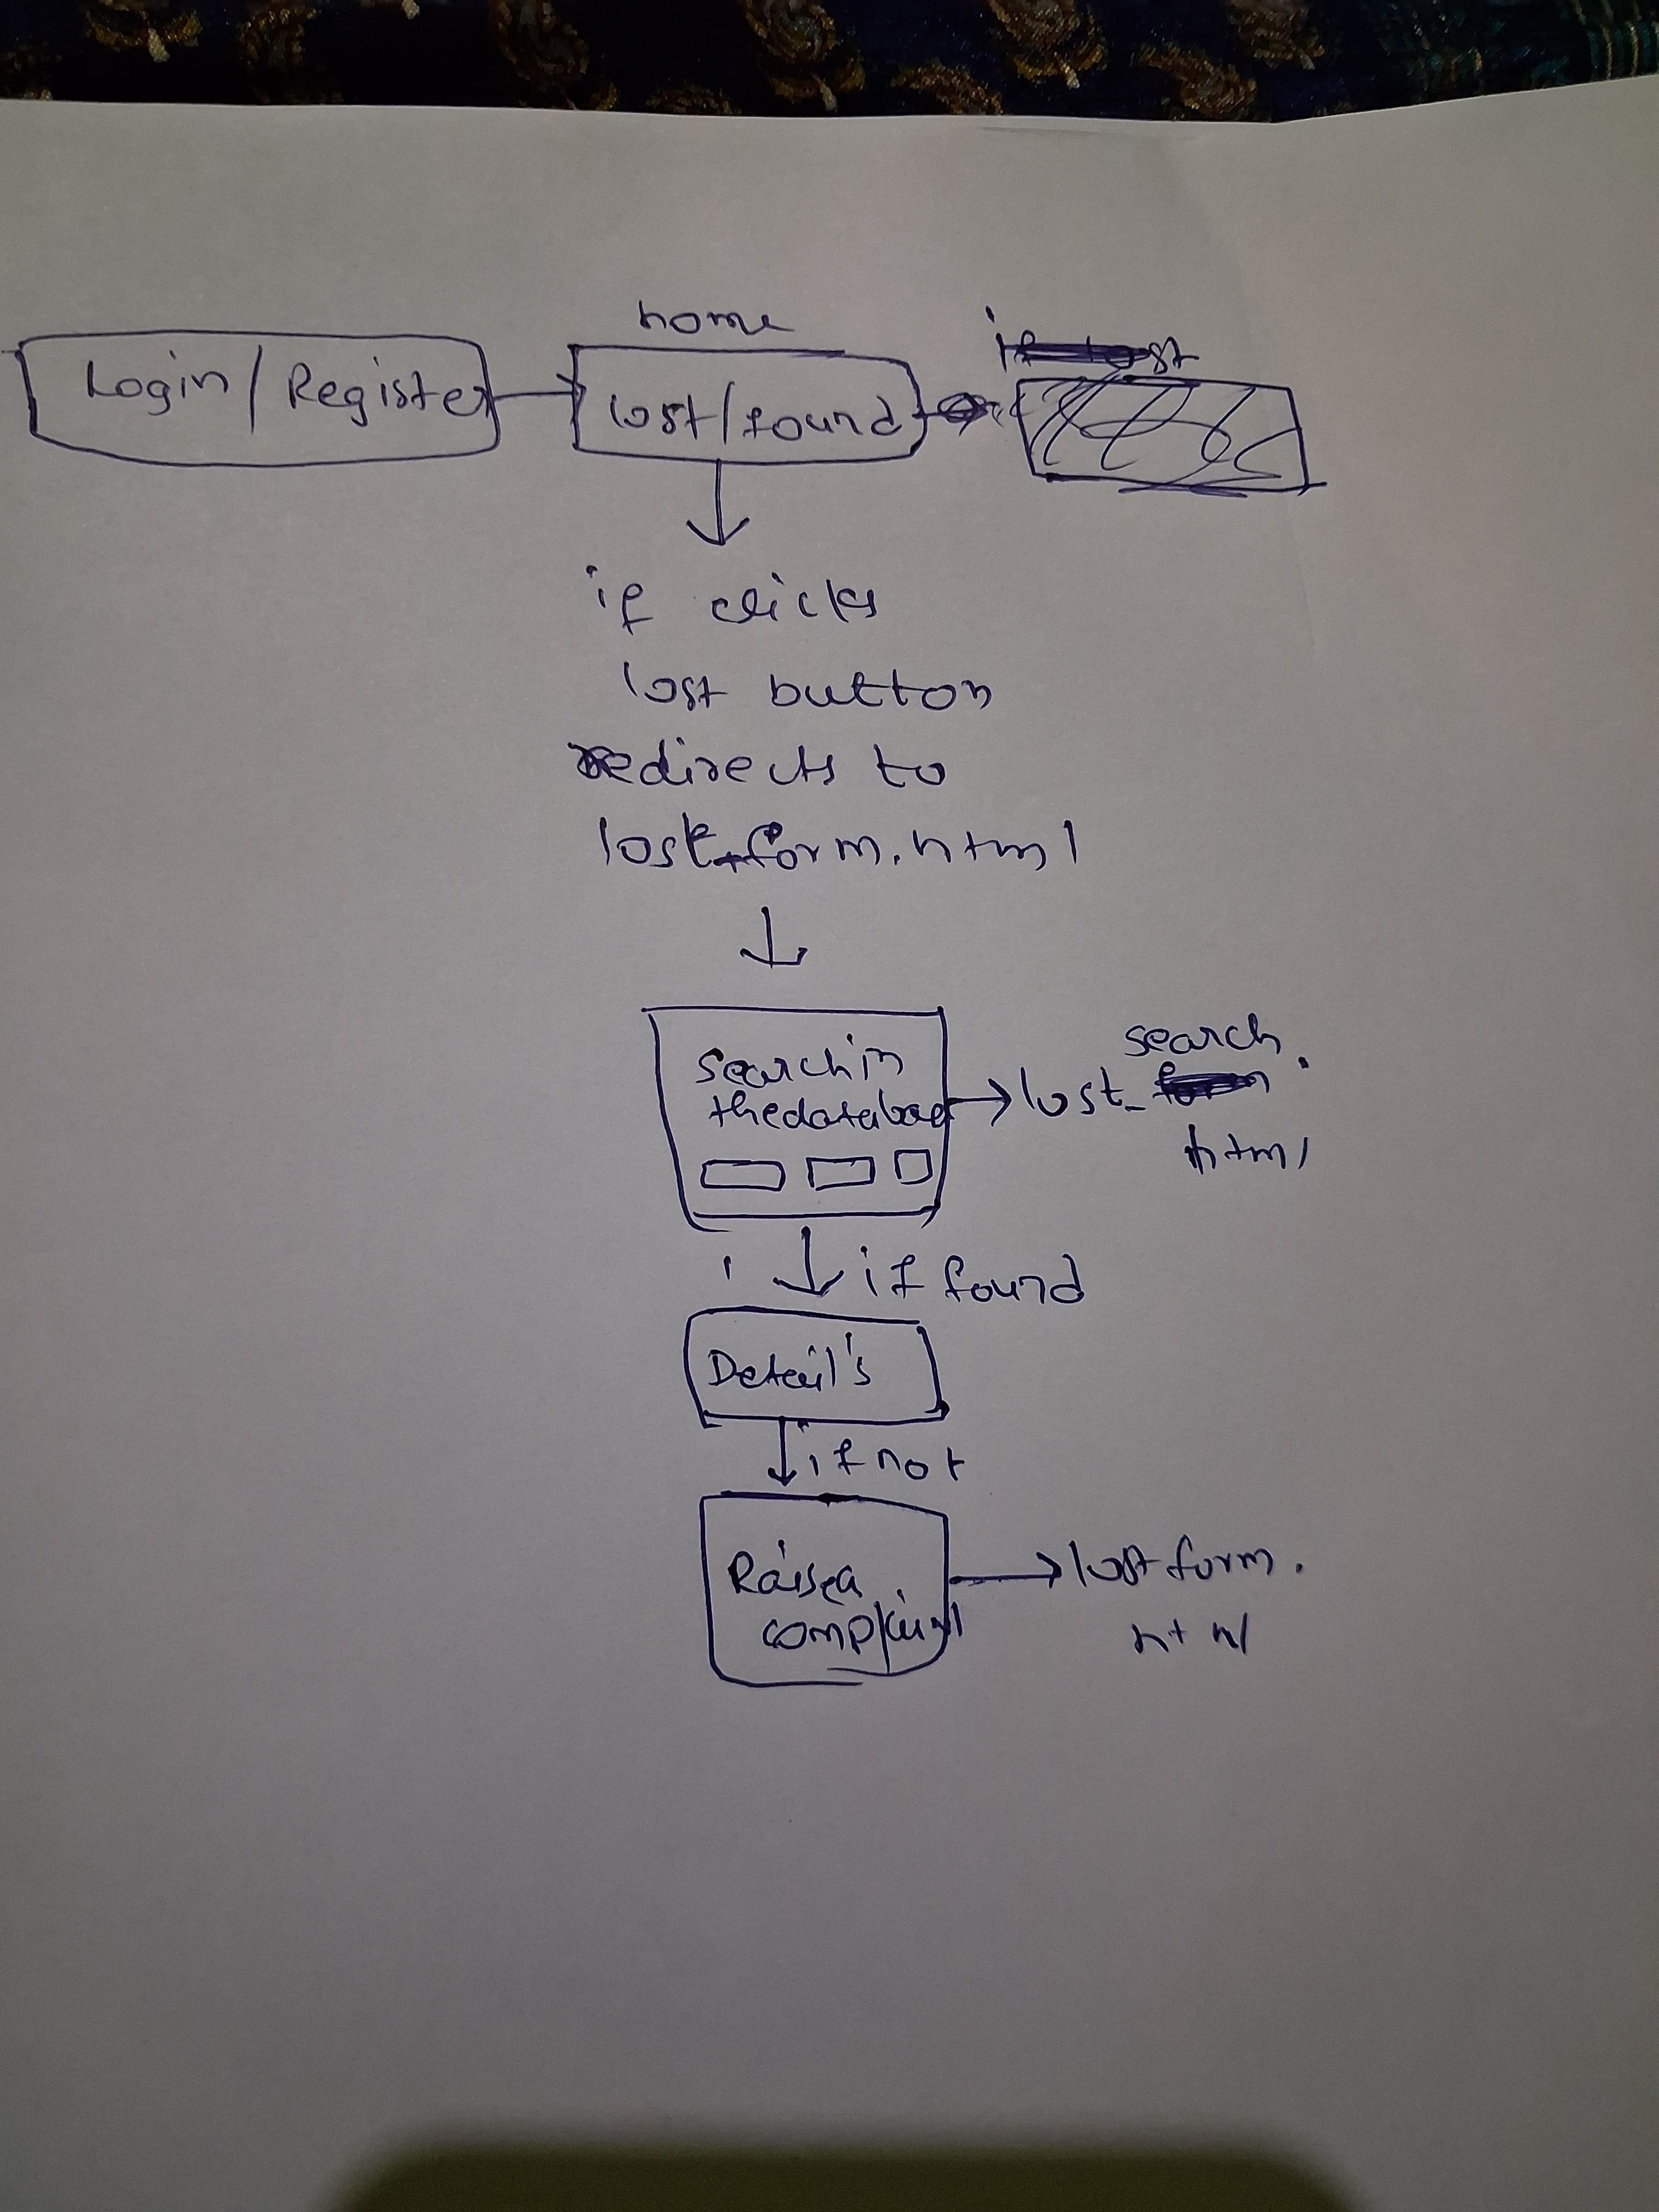 home
Login / Register
lost/found
if clicks
lost button
redirects to
lost_form.html
search in
the databa
search.
lost_
html
if found
Detail's
if not
Raise a
complaint
lost form.
html